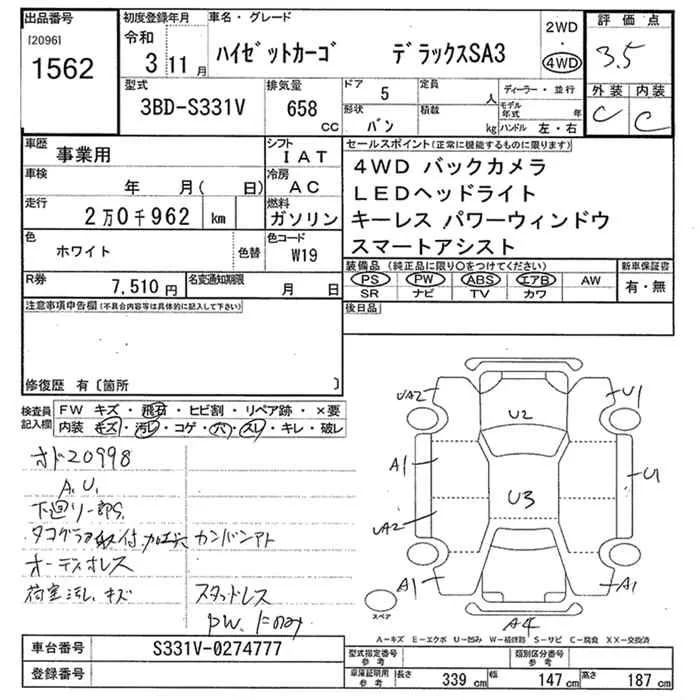 出品番号
[2096]
1562
初度登録年月
令和
3年 11月
車名・グレード
ハイゼットカーゴ デラックスSA3
2WD
・
4WD
評価点
3.5
外装 内装
C C
型式
3BD-S331V
排気量
658
cc
ドア
5
形状
バン
定員
人
積載
kg
ディーラー・並行
モデル年式 年
ハンドル 左・右
車歴
事業用
シフト
IAT
車検
年 月( 日)
冷房
AC
走行
2万0千962 km
燃料
ガソリン
色
ホワイト
色替
色コード
W19
セールスポイント(正常に機能するものに限ります)
4WD バックカメラ
LEDヘッドライト
キーレス パワーウィンドウ
スマートアシスト
R券
7,510円
名変通知期限
月 日
装備品(純正品に限り○をつけてください)
PS PW ABS エアB AW
SR ナビ TV カワ
新車保証書
有・無
注意事項申告欄(不具合内容等は具体的に記入して下さい)
後日品
修復歴 有〔箇所 〕
検査員
記入欄
FW キズ・飛石・ヒビ割・リペア跡・×要
内装・キズ・汚レ・コゲ・穴・スレ・キレ・破レ
オド20998
A.U.
下廻り一部S
タコグラフ取付加工穴 カンバンアト
オーディオレス
荷室汚レ、キズ スタッドレス
PW.Fのみ
UA2
U2
U1
A1
U3
U1
UA2
A1
A1
A4
スペア
A−キズ E−エクボ U−凹み W−補修跡 S−サビ C−腐食 XX−交換済
車台番号
S331V-0274777
登録番号
型式指定番号
参考
類別区分番号
参考
車庫証明用
参考
長さ 339 cm 幅 147 cm 高さ 187 cm